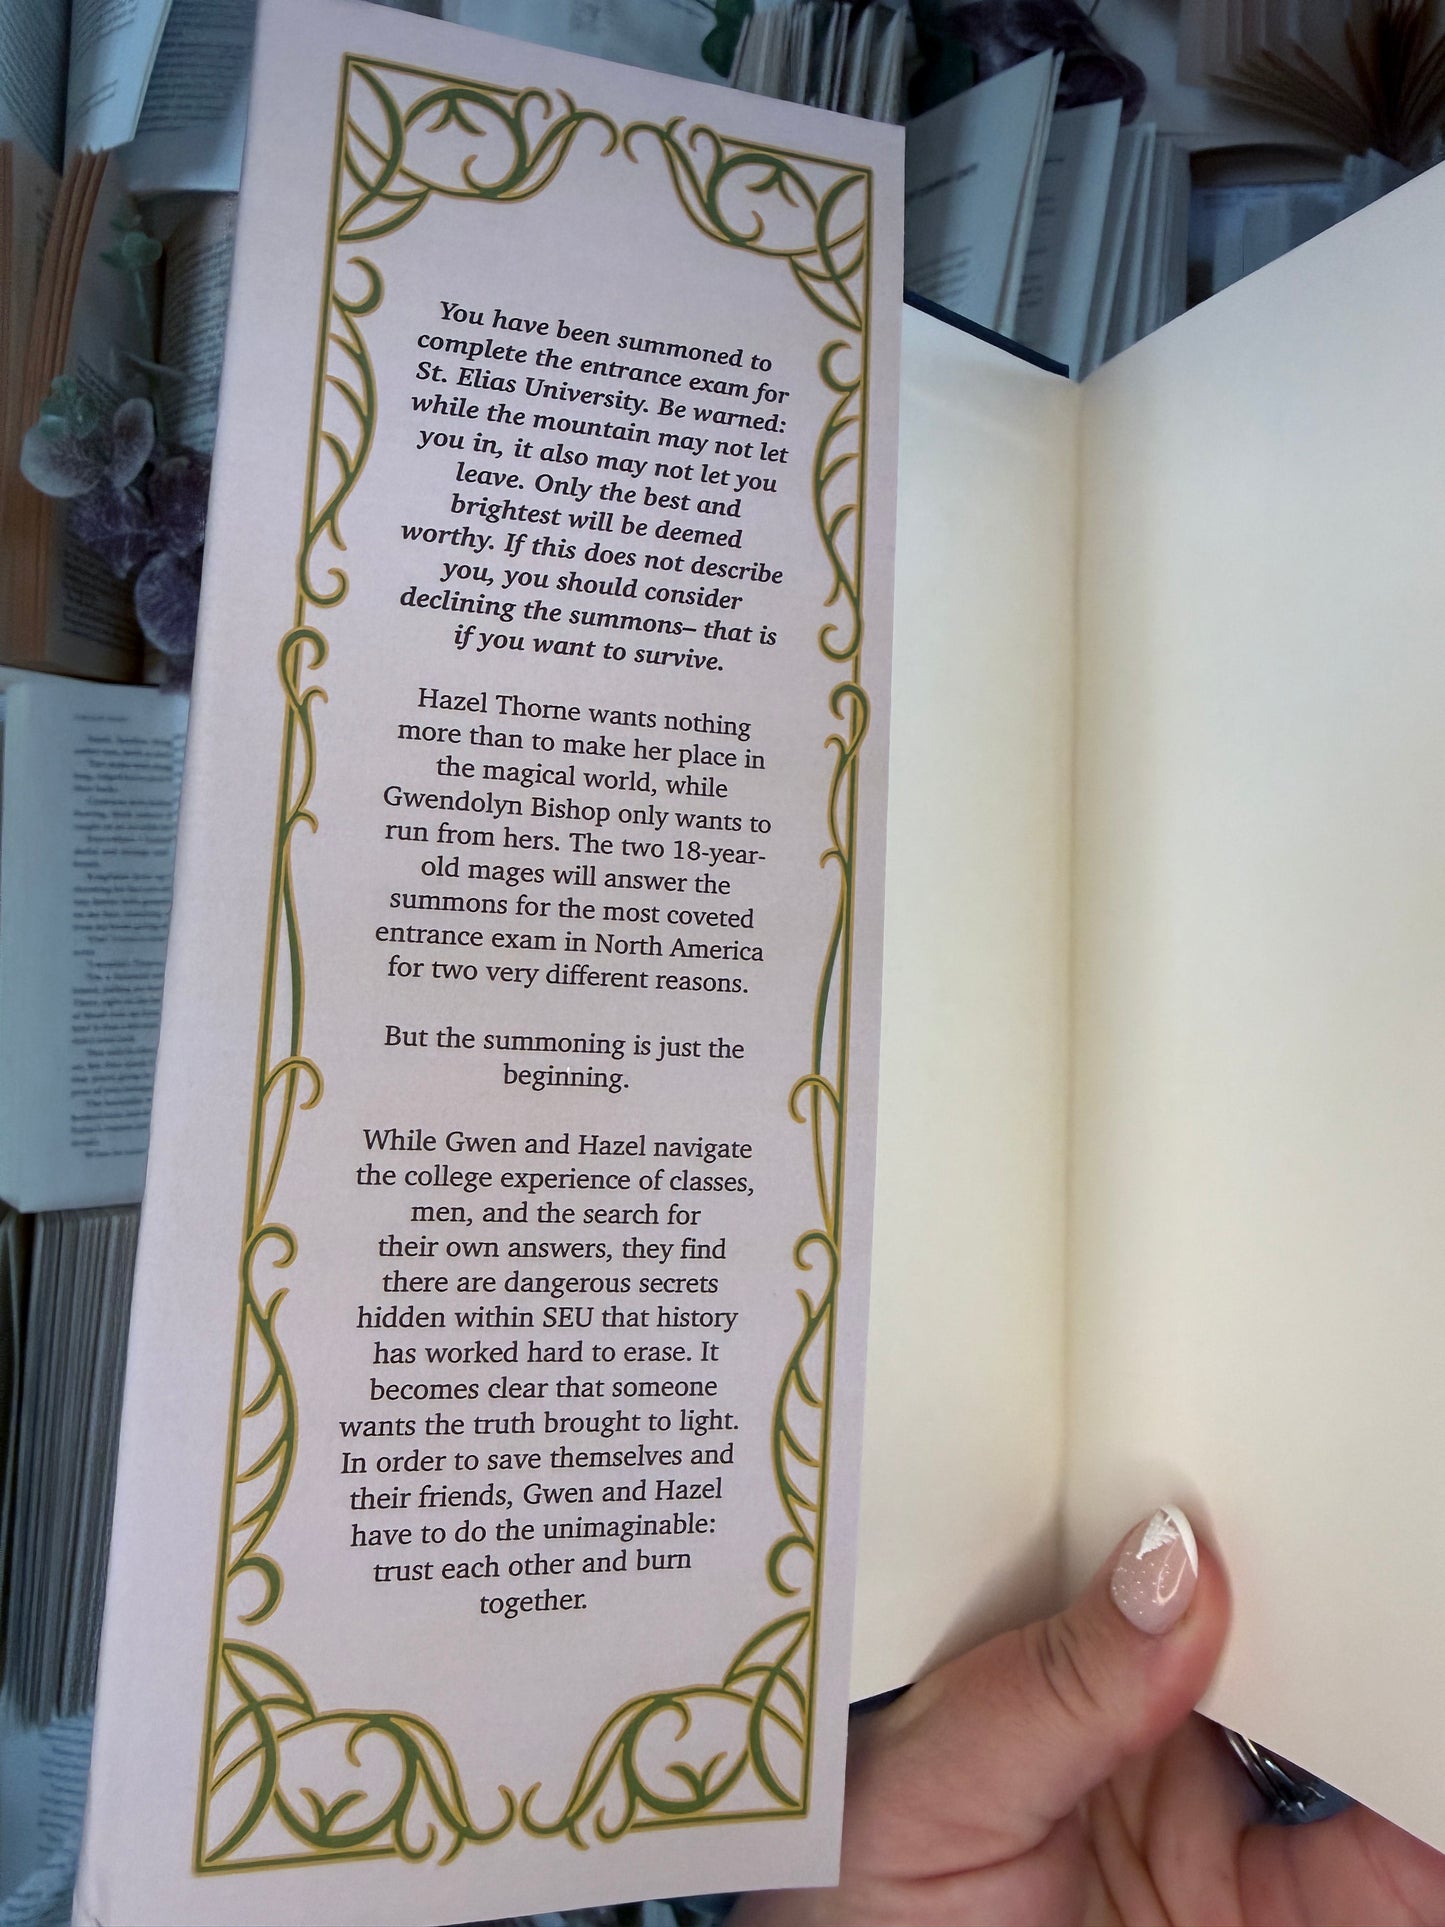 You have been summoned to
complete the entrance exam for
St. Elias University. Be warned:
while the mountain may not let
you in, it also may not let you
leave. Only the best and
brightest will be deemed
worthy. If this does not describe
you, you should consider
declining the summons– that is
if you want to survive.
Hazel Thorne wants nothing
more than to make her place in
the magical world, while
Gwendolyn Bishop only wants to
run from hers. The two 18-year-
old mages will answer the
summons for the most coveted
entrance exam in North America
for two very different reasons.
But the summoning is just the
beginning.
While Gwen and Hazel navigate
the college experience of classes,
men, and the search for
their own answers, they find
there are dangerous secrets
hidden within SEU that history
has worked hard to erase. It
becomes clear that someone
wants the truth brought to light.
In order to save themselves and
their friends, Gwen and Hazel
have to do the unimaginable:
trust each other and burn
together.